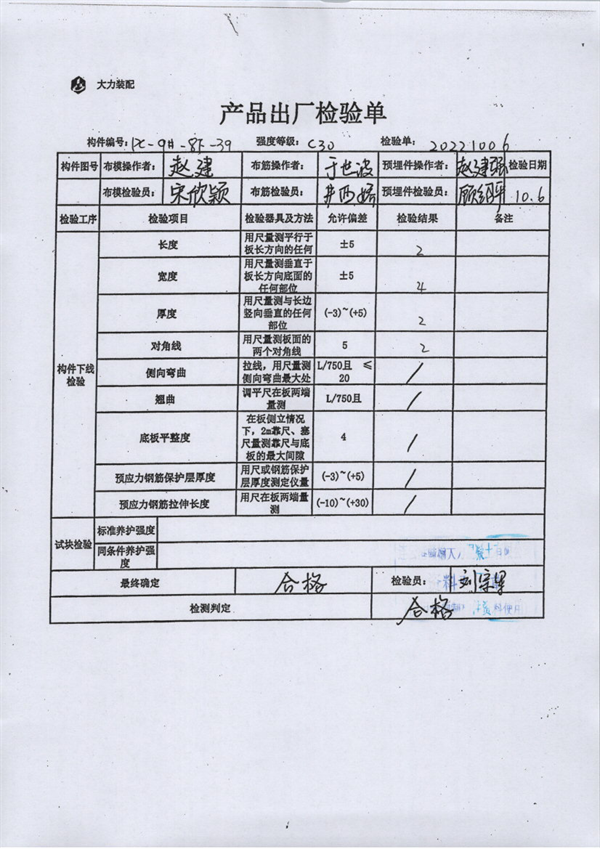 大力装配
产品出厂检验单
构件编号: PC-9#-8F-39 强度等级: C30 检验单: 20221006
构件图号 布模操作者: 赵建 布筋操作者: 于世波 预埋件操作者: 赵建强 检验日期
布模检验员: 宋欣颖 布筋检验员: 预埋件检验员: 10.6
检验工序 检验项目 检验器具及方法 允许偏差 检验结果 备注
构件下线检验
长度 用尺量测平行于板长方向的任何 ±5 2
宽度 用尺量测垂直于板长方向底面的任何部位 ±5 4
厚度 用尺量测与长边竖向垂直的任何部位 (-3)~(+5) 2
对角线 用尺量测板面的两个对角线 5 2
侧向弯曲 拉线，用尺量测侧向弯曲最大处 L/750且 ≤20 /
翘曲 调平尺在板两端量测 L/750且 /
底板平整度 在板侧立情况下，2m靠尺、塞尺量测靠尺与底板的最大间隙 4 /
预应力钢筋保护层厚度 用尺或钢筋保护层厚度测定仪量 (-3)~(+5) /
预应力钢筋拉伸长度 用尺在板两端量测 (-10)~(+30) /
试块检验 标准养护强度
同条件养护强度
最终确定 合格 检验员:
检测判定 合格